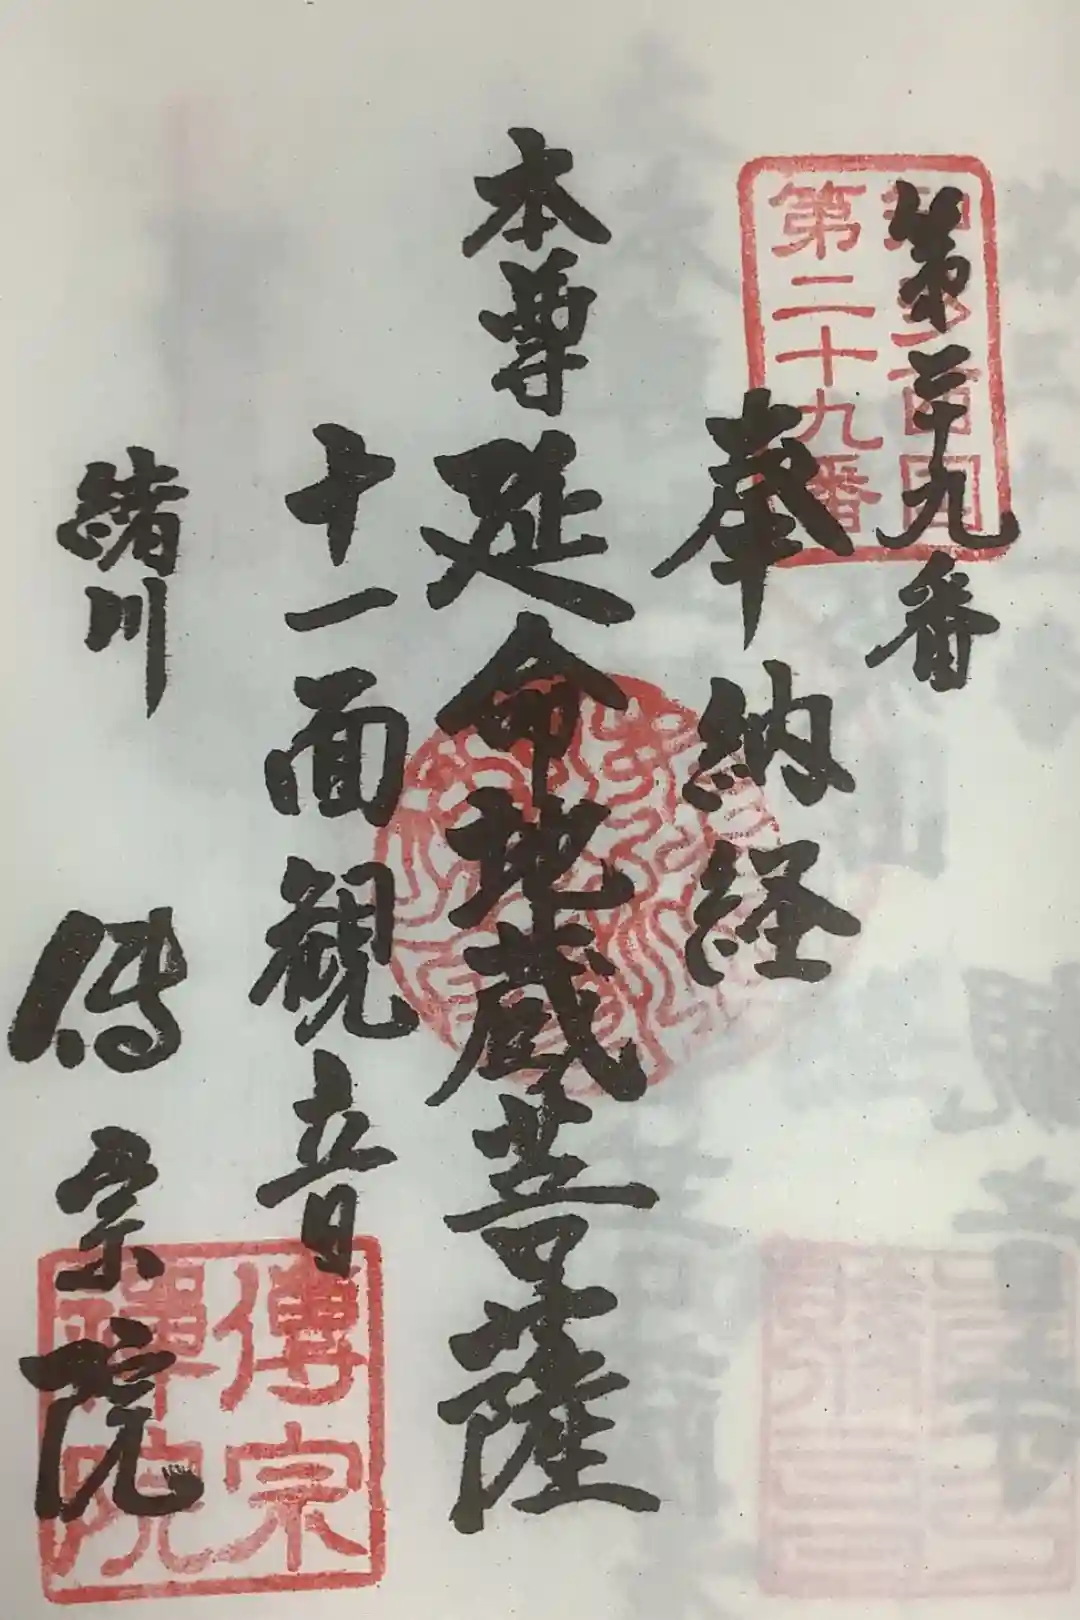 第二十九番
知多四国
第二十九番
奉納経
本尊延命地蔵菩薩
十一面観音
緒川
傳宗院
傳宗
禅院